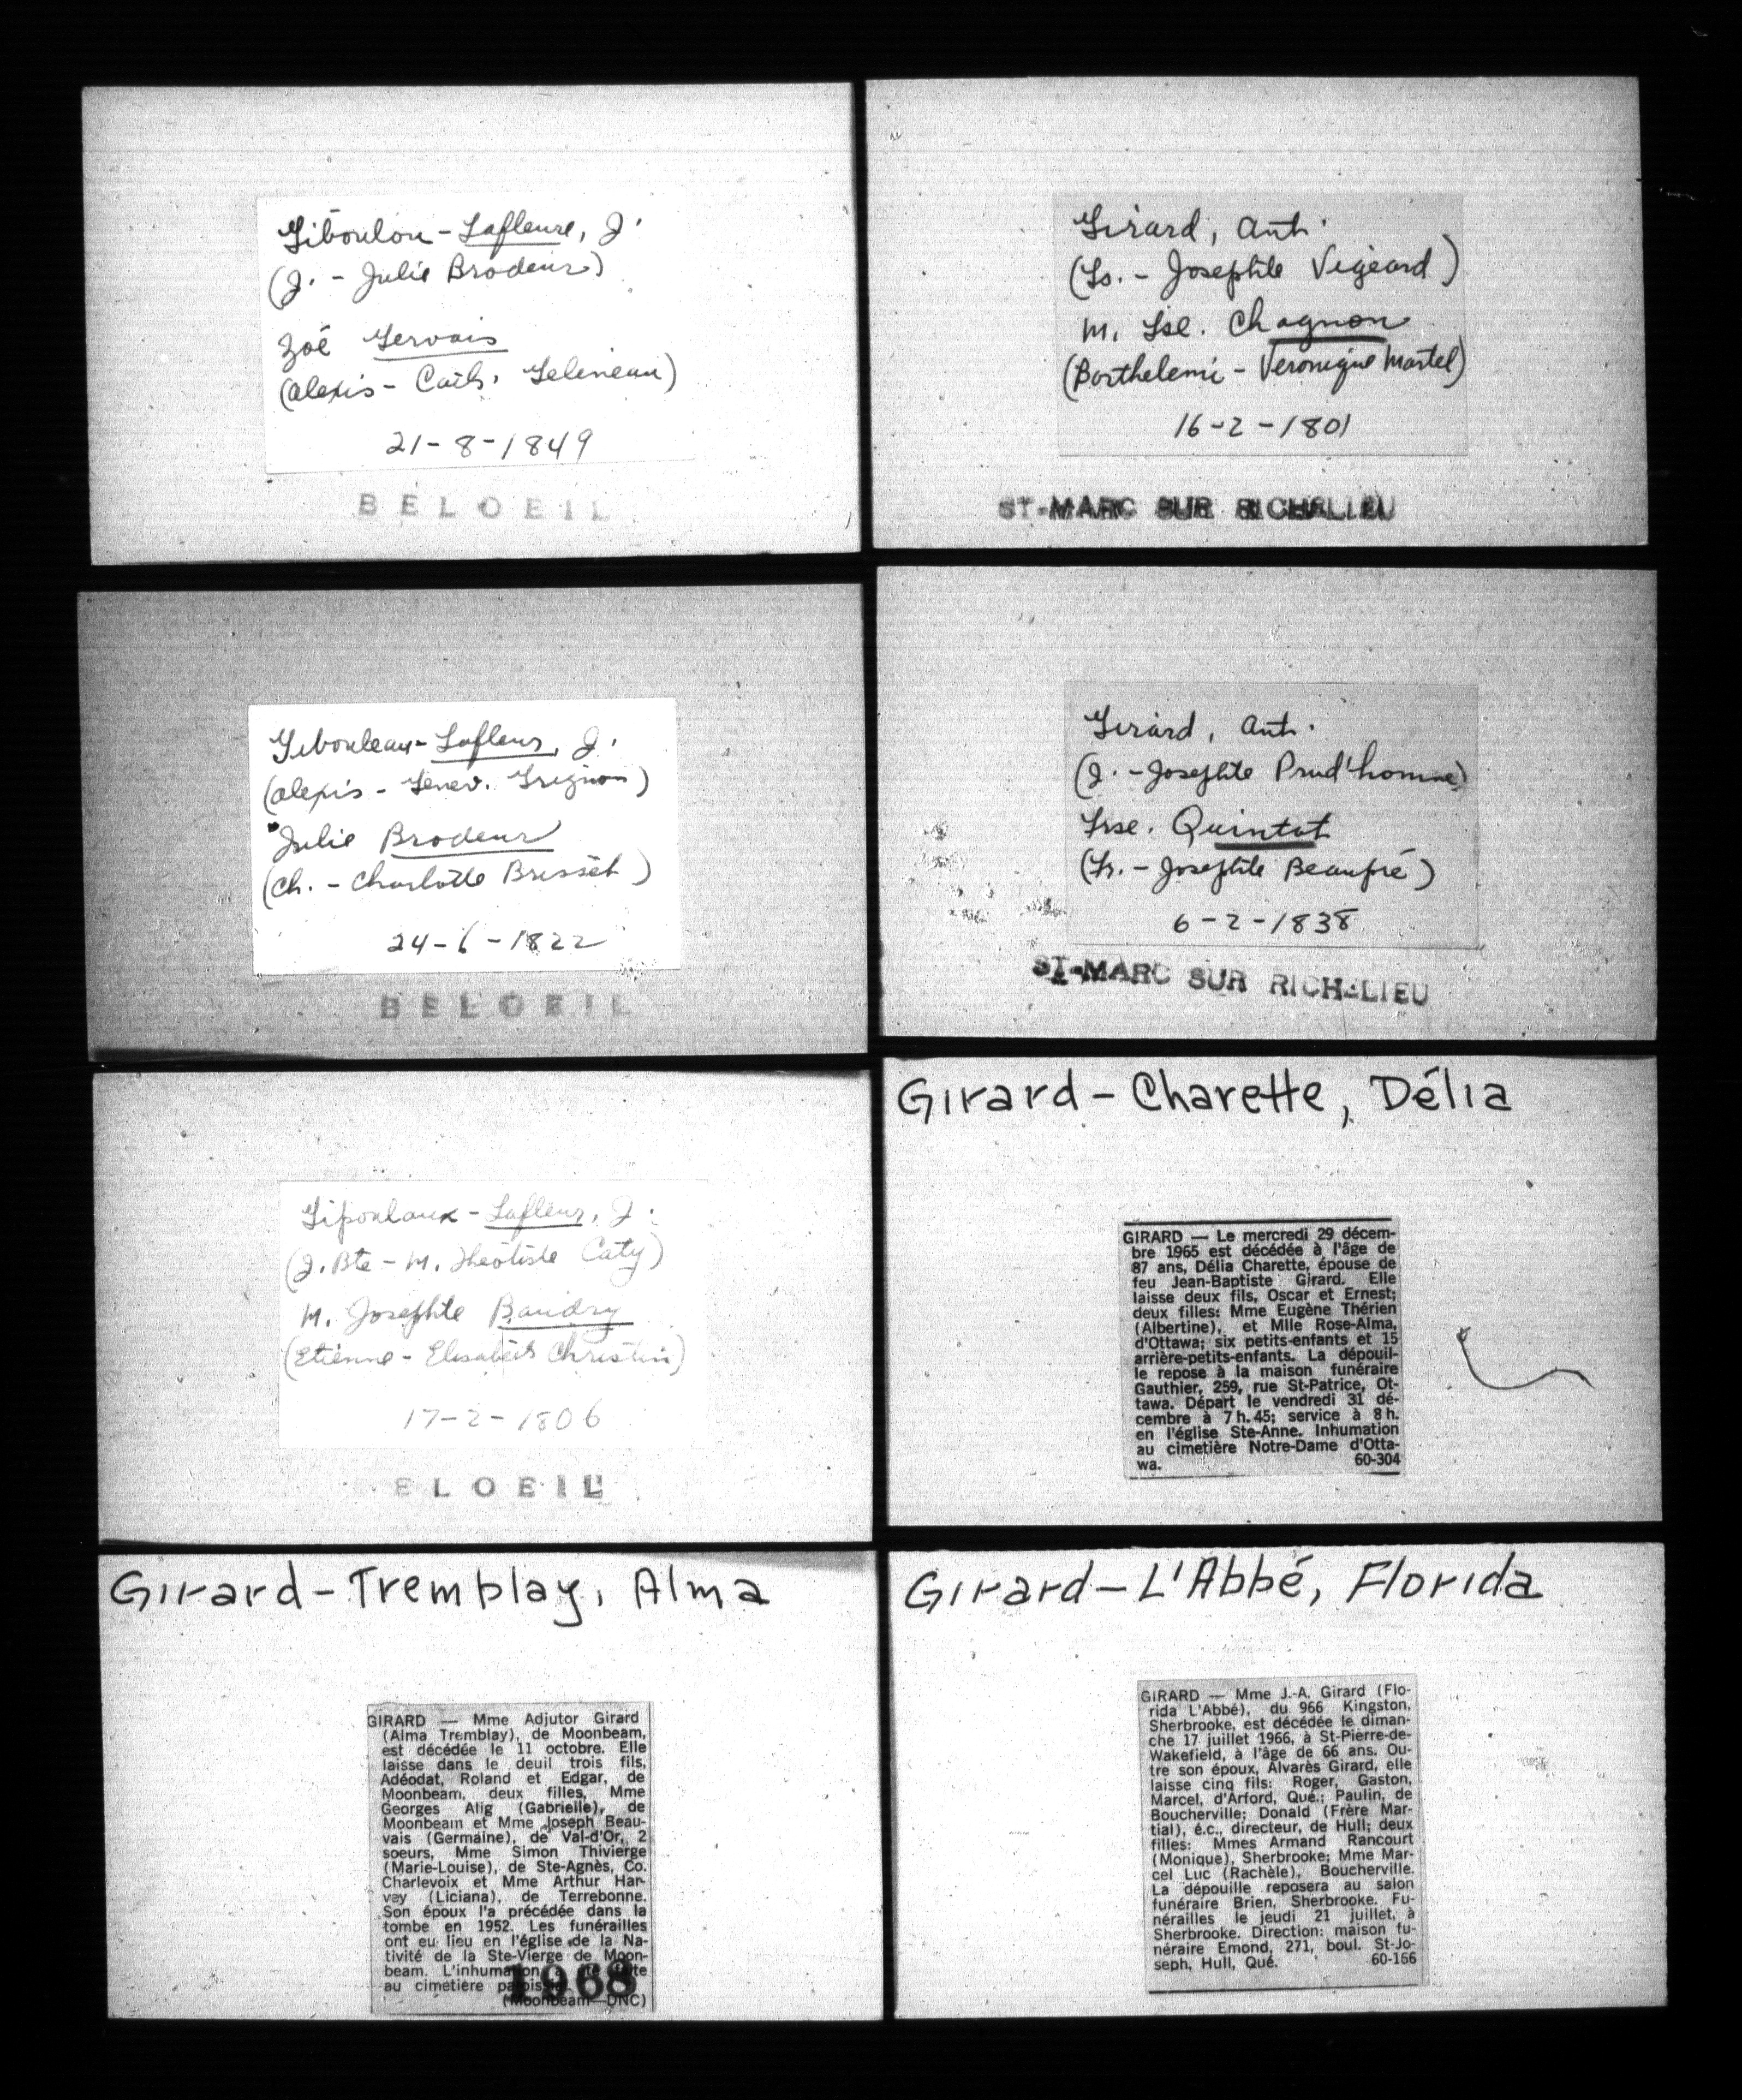 Giboulou-Lafleure, J.
(J. - Julie Brodeur)
Zoé Gervais
(Alexis - Cath. Gelineau)
21-8-1849
BELOEIL
Girard, Ant.
(Ls. - Josephte Vigeard)
M. Lse. Chagnon
(Barthelemi - Veronique Martel)
16-2-1801
ST-MARC SUR RICHELIEU
Gibouleau-Lafleur, J.
(Alexis - Genev. Grignon)
Julie Brodeur
(Ch. - Charlotte Brisset)
24-6-1822
BELOEIL
Girard, Ant.
(J. - Josephte Prud'homme)
Frse. Quintat
(Fr. - Josephte Beaupré)
6-2-1838
ST-MARC SUR RICHELIEU
Gipoulaux-Lafleur, J.
(J. Bte - M. Théotiste Caty)
M. Josephte Baudry
(Etienne - Elisabeth Christin)
17-2-1806
ELOEIL
Girard-Charette, Délia
GIRARD — Le mercredi 29 décem-
bre 1965 est décédée à l'âge de
87 ans, Délia Charette, épouse de
feu Jean-Baptiste Girard. Elle
laisse deux fils, Oscar et Ernest;
deux filles: Mme Eugène Thérien
(Albertine), et Mlle Rose-Alma,
d'Ottawa; six petits-enfants et 15
arrière-petits-enfants. La dépouil-
le repose à la maison funéraire
Gauthier, 259, rue St-Patrice, Ot-
tawa. Départ le vendredi 31 dé-
cembre à 7 h. 45; service à 8 h.
en l'église Ste-Anne. Inhumation
au cimetière Notre-Dame d'Otta-
wa. 60-304
Girard-Tremblay, Alma
GIRARD — Mme Adjutor Girard
(Alma Tremblay), de Moonbeam,
est décédée le 11 octobre. Elle
laisse dans le deuil trois fils,
Adéodat, Roland et Edgar, de
Moonbeam, deux filles, Mme
Georges Alig (Gabrielle), de
Moonbeam et Mme Joseph Beau-
vais (Germaine), de Val-d'Or, 2
soeurs, Mme Simon Thivierge
(Marie-Louise), de Ste-Agnès, Co.
Charlevoix et Mme Arthur Har-
vey (Liciana), de Terrebonne.
Son époux l'a précédée dans la
tombe en 1952. Les funérailles
ont eu lieu en l'église de la Na-
tivité de la Ste-Vierge de Moon-
beam. L'inhumation a été faite
au cimetière paroissial.
(Moonbeam—DNC)
1968
Girard-L'Abbé, Florida
GIRARD — Mme J.-A. Girard (Flo-
rida L'Abbé), du 966 Kingston,
Sherbrooke, est décédée le diman-
che 17 juillet 1966, à St-Pierre-de-
Wakefield, à l'âge de 66 ans. Ou-
tre son époux, Alvarès Girard, elle
laisse cinq fils: Roger, Gaston,
Marcel, d'Arford, Qué.; Paulin, de
Boucherville; Donald (Frère Mar-
tial), é.c., directeur, de Hull; deux
filles: Mmes Armand Rancourt
(Monique), Sherbrooke; Mme Mar-
cel Luc (Rachèle), Boucherville.
La dépouille reposera au salon
funéraire Brien, Sherbrooke. Fu-
nérailles le jeudi 21 juillet, à
Sherbrooke. Direction: maison fu-
néraire Emond, 271, boul. St-Jo-
seph, Hull, Qué. 60-156